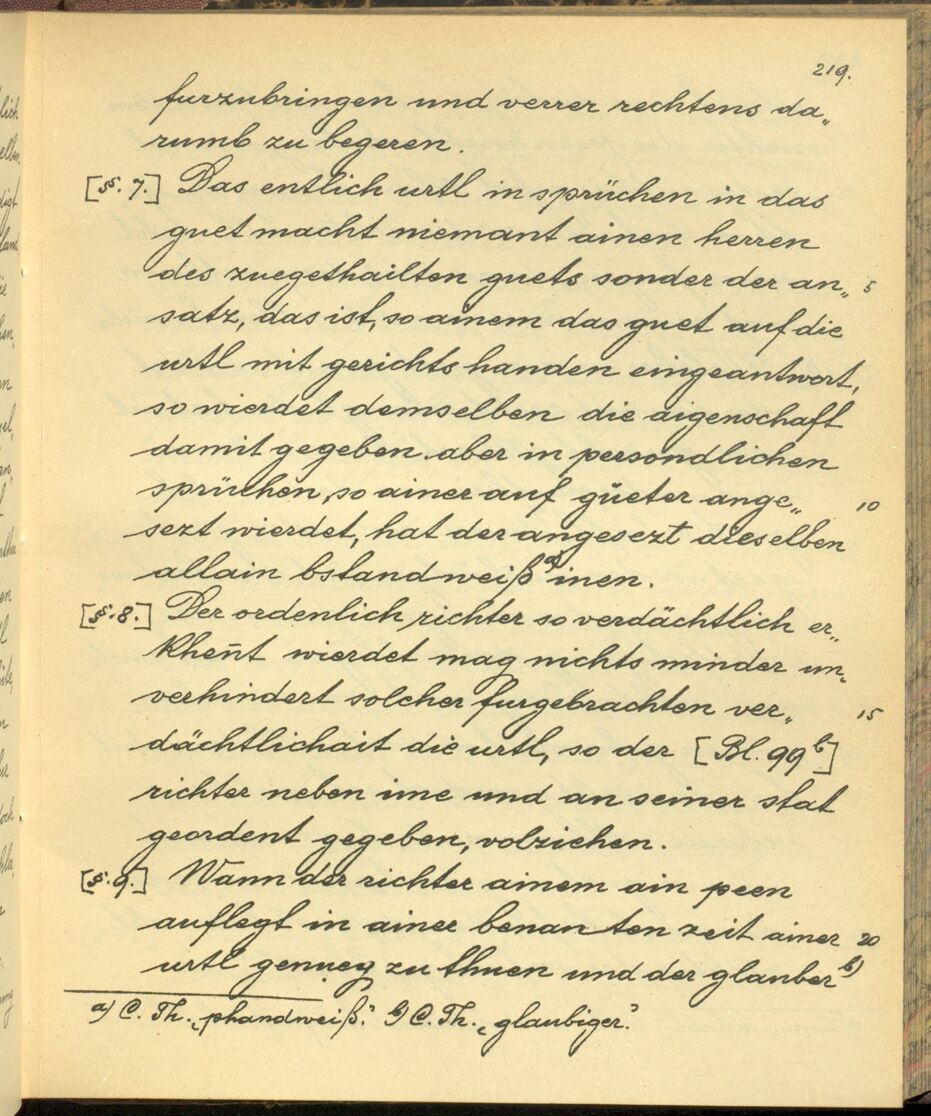 219.
furzubringen und verrer rechtens da„
rumb zu begeren.
[§. 7.] Das entlich urtl in sprüchen in das
guet macht niemant ainen herren
des zuegethailten guets sonder der an„ 5
satz, das ist, so ainem das guet auf die
urtl mit gerichts handen eingeantwort,
so wierdet demselben die aigenschaft
damit gegeben. aber in persondlichen
sprüchen, so ainer auf güeter ange„ 10
sezt wierdet, hat der angesezt dieselben
allain bstandweiß a) inen.
[§. 8.] Der ordenlich richter so verdächtlich er„
khen̄t wierdet mag nichts minder un„
verhindert solcher furgebrachten ver„ 15
dächtlichait die urtl, so der [Bl. 99 b]
richter neben ime und an seiner stat
geordent gegeben, volziehen.
[§. 9.] Wann der richter ainem ain peen
auflegt in ainer benanten zeit ainer 20
urtl genueg zu thuen und der glauber b)
a) C. Th. „phandweiß.“ b) C. Th. „glaubiger“.